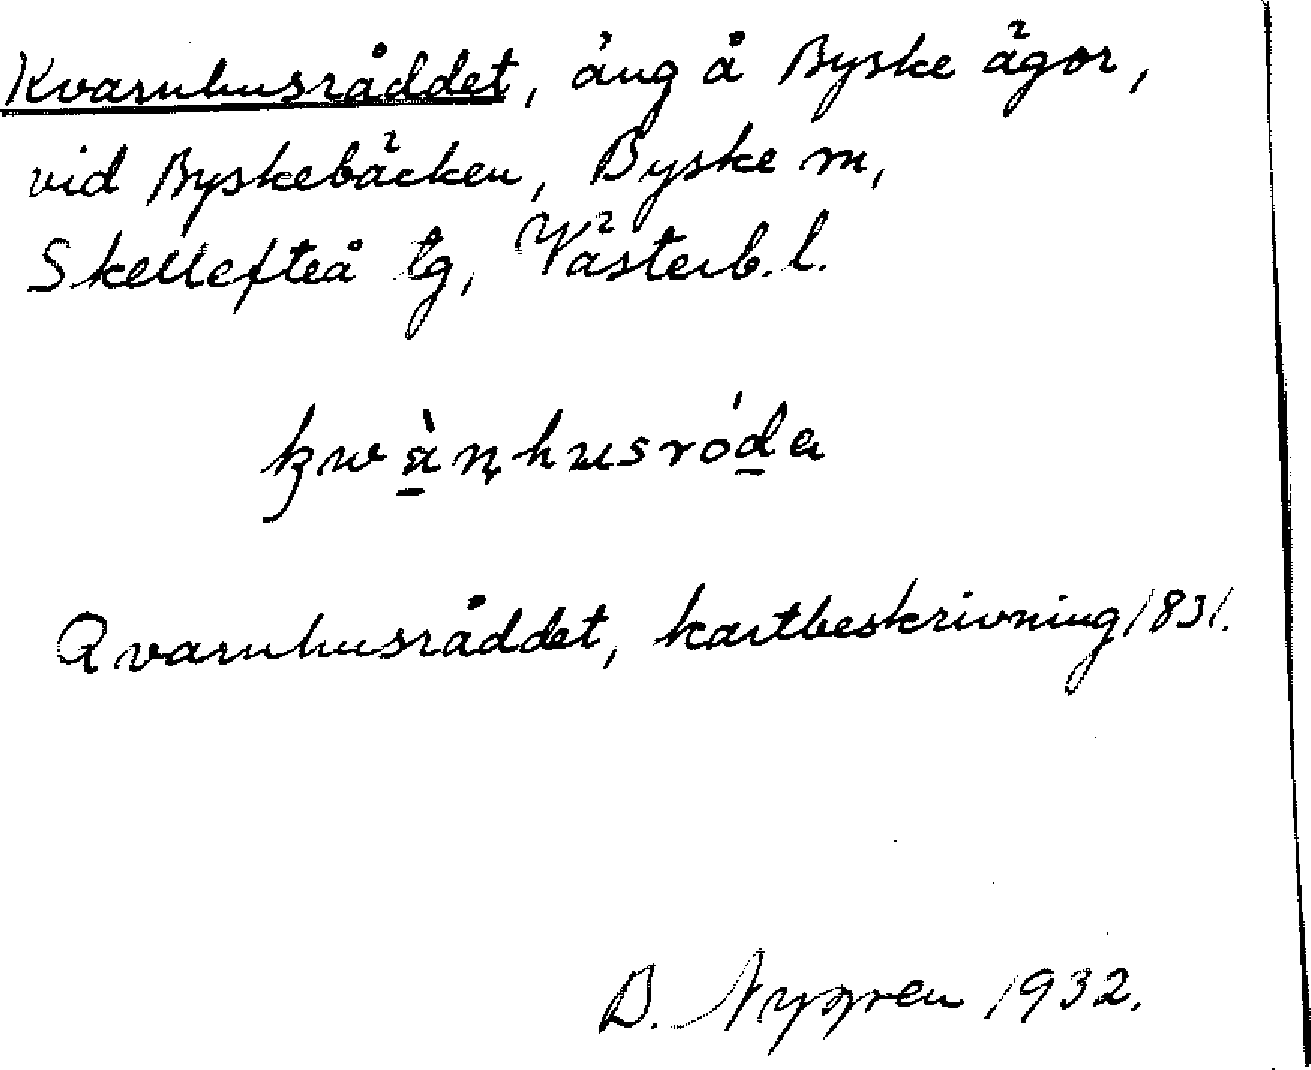 Kvarnhusråddet, äng å Byske ägor,
vid Byskebäcken, Byske m,
Skellefteå tg, Västerb. l.
kwà̱ṇhusróḏa
Qvarnhusråddet, kartbeskrivning 1831.
B. Nygren 1932.